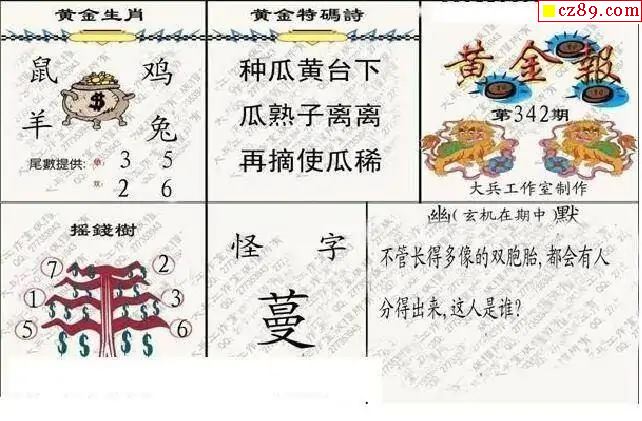 cz89.com
黄金生肖
鼠 鸡
$
羊 兔
尾數提供: 单 3 5
双 2 6
黄金特碼詩
种瓜黄台下
瓜熟子离离
再摘使瓜稀
黄金報
第342期
大兵工作室制作
摇錢樹
7 2
1 3
5 6
怪 字
蔓
幽(玄机在期中)默
不管长得多像的双胞胎,都会有人
分得出来,这人是谁?